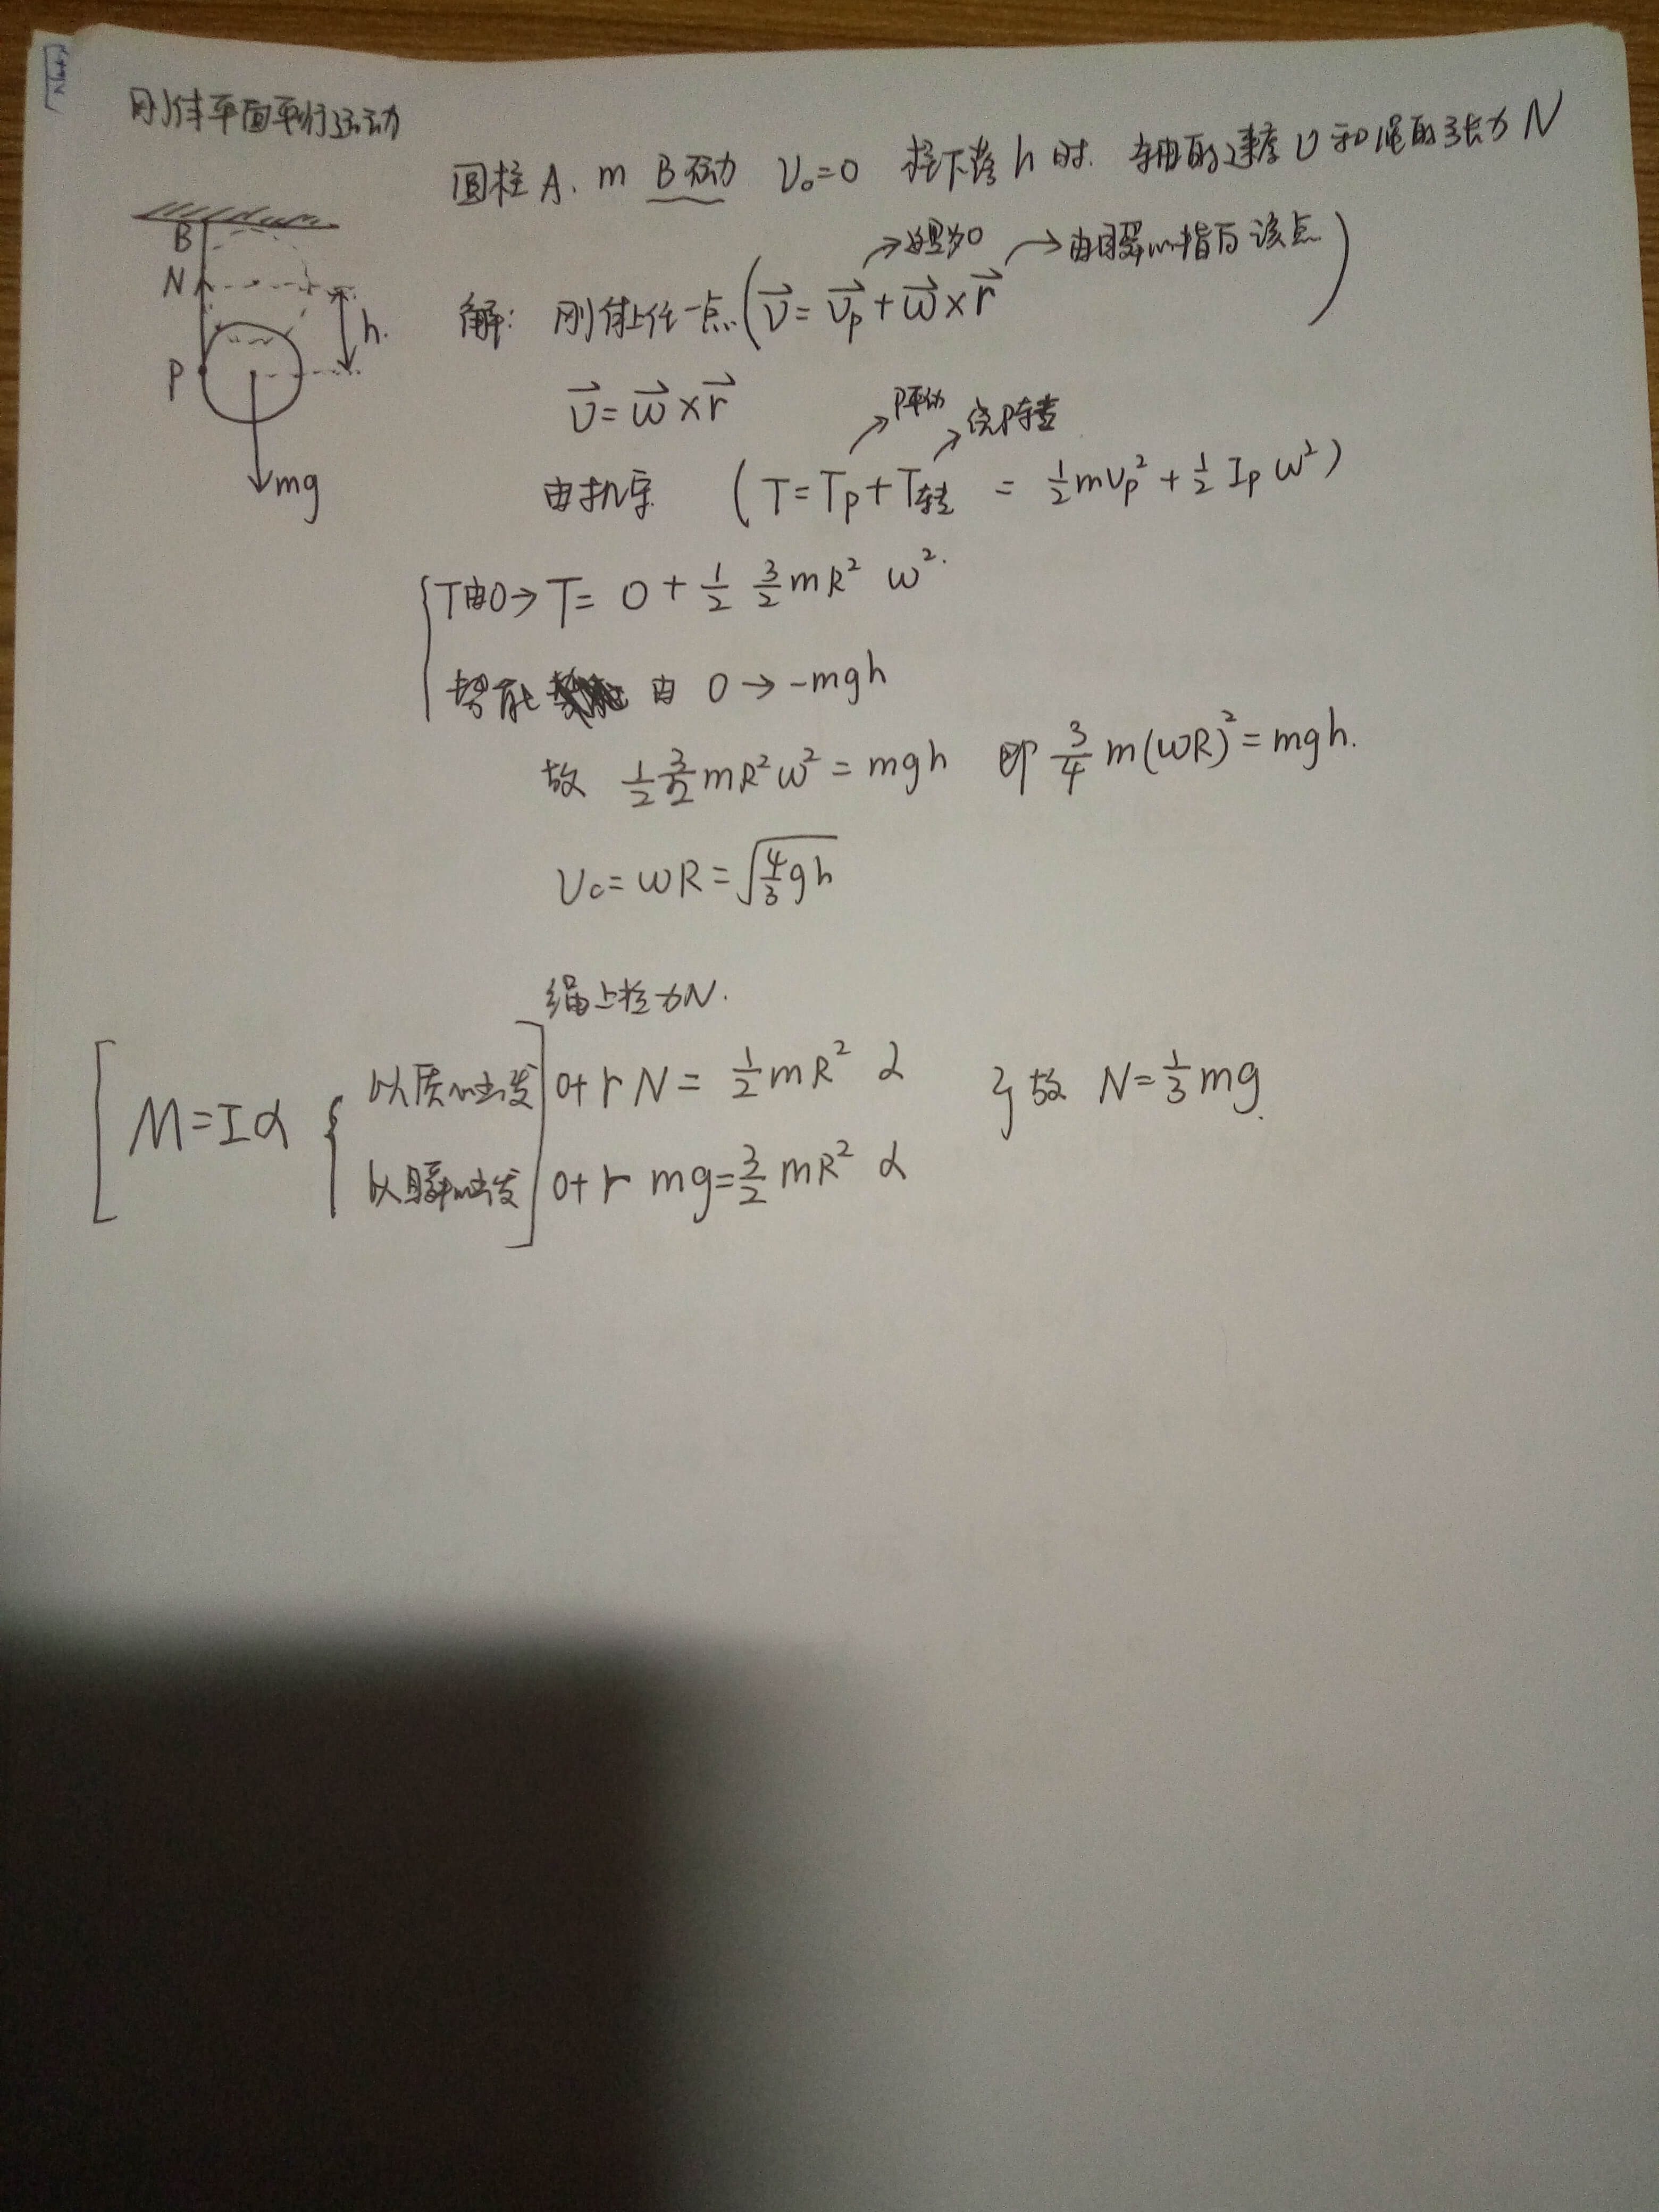 刚体平面平行运动
圆柱 A. m B不动 V₀=0 柱下落 h 时. 轴的速度 υ 和绳的张力 N
B
N
h.
P
mg
这里为0
由瞬心指向该点
解: 刚体上任一点 (v⃗ = v⃗ₚ + ω⃗ × r⃗)
υ⃗ = ω⃗ × r⃗
P平动
绕P转
由机守 (T = Tₚ + T转 = ½mυₚ² + ½ Iₚ ω²)
T由0→T = 0 + ½ 3/2 mR² ω².
势能 由 0 → -mgh
故 ½ 3/2 mR²ω² = mgh 即 3/4 m(ωR)² = mgh.
υc = ωR = √(4/3 gh)
绳上拉力N.
M = Iα
以质心出发 0 + rN = ½mR² α
以瞬心出发 0 + r mg = 3/2 mR² α
故 N = 1/3 mg.